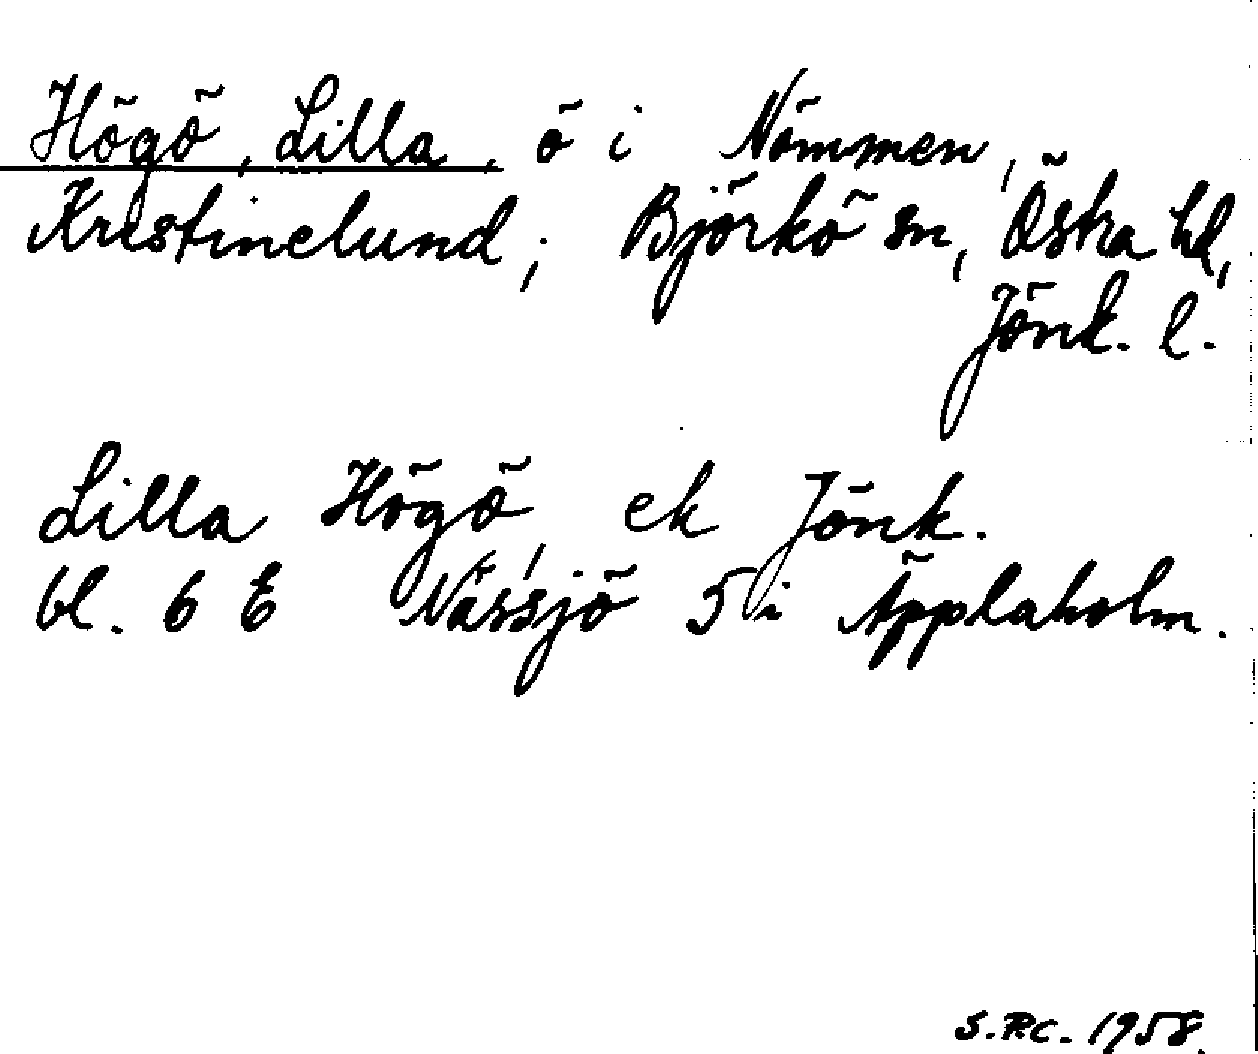 Högö, Lilla, ö i Nömmen,
Kristinelund; Björkö sn, Östra hd,
Jönk. l.
Lilla Högö, ek Jönk.
bl. 6 E Nässjö 5 i Äpplaholm.
S.P.C. 1958.